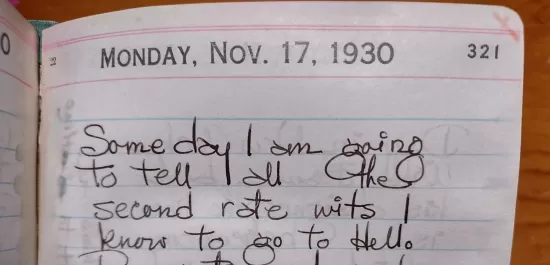 0
MONDAY, NOV. 17, 1930 321
Some day I am going
to tell all the
second rate wits I
know to go to Hell.